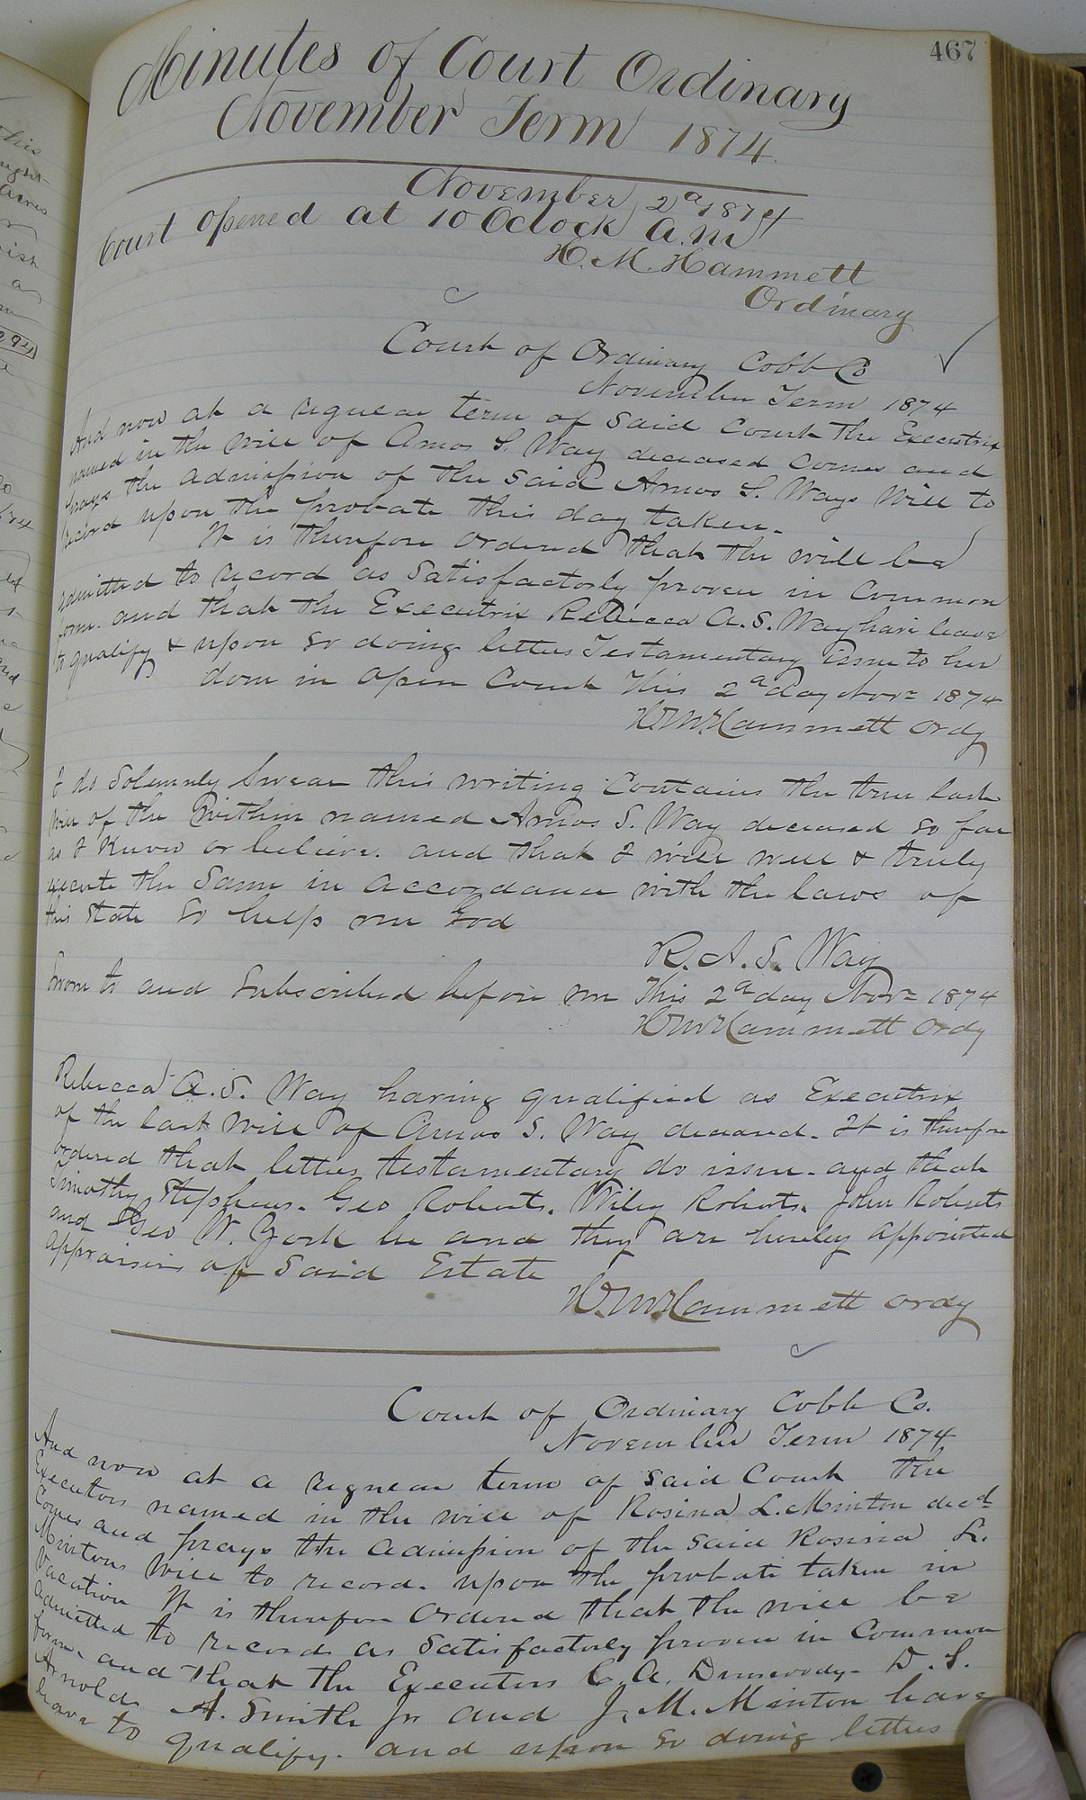 467
Minutes of Court Ordinary
November Term 1874.
November 2d 1874
Court opened at 10 Oclock A.M
H. M. Hammett
Ordinary
Court of Ordinary Cobb Co
November Term 1874
And now at a regular term of said Court the Executrix
named in the will of Amos S. Way deceased comes and
prays the admission of the said Amos S. Ways will to
record upon the probate this day taken.
It is therefore ordered that the will be
admitted to record as satisfactorly proven in Common
form. and that the Executrix Rebecca A. S. Way have leave
to qualify & upon so doing letters Testamentary issue to her
done in open Court this 2d day Novr 1874
H M Hammett Ordy
I do Solemnly Swear this writing Contains the true last
will of the within named Amos S. Way deceased so far
as I know or believe. and that I will well & truly
execute the same in accordance with the laws of
this State So help me God
R. A. S. Way
Sworn to and Subscribed before me This 2d day Novr 1874
H M Hammett Ordy
Rebecca A. S. Way having qualified as Executrix
of the last will of Amos S. Way deceased. It is therefore
ordered that letters testamentary do issue. and that
Timothy Stephens. Geo Roberts. Wiley Roberts. John Roberts
and Geo W. York be and they are hereby appointed
appraisers of said Estate
H. M. Hammett Ordy
Court of Ordinary Cobb Co.
November Term 1874
And now at a regular term of said Court the
Executors named in the will of Rosina L. Minton decd
Comes and prays the admission of the said Rosina L.
Mintons will to record. upon the probate taken in
vacation It is therefore ordered that the will be
admitted to record as satisfactorly proven in Common
form. and that the Executors C. A. Dunwoody. D. S.
Arnold. A. Smith Jr and J. M. Minton have
leave to qualify. and upon so doing letters